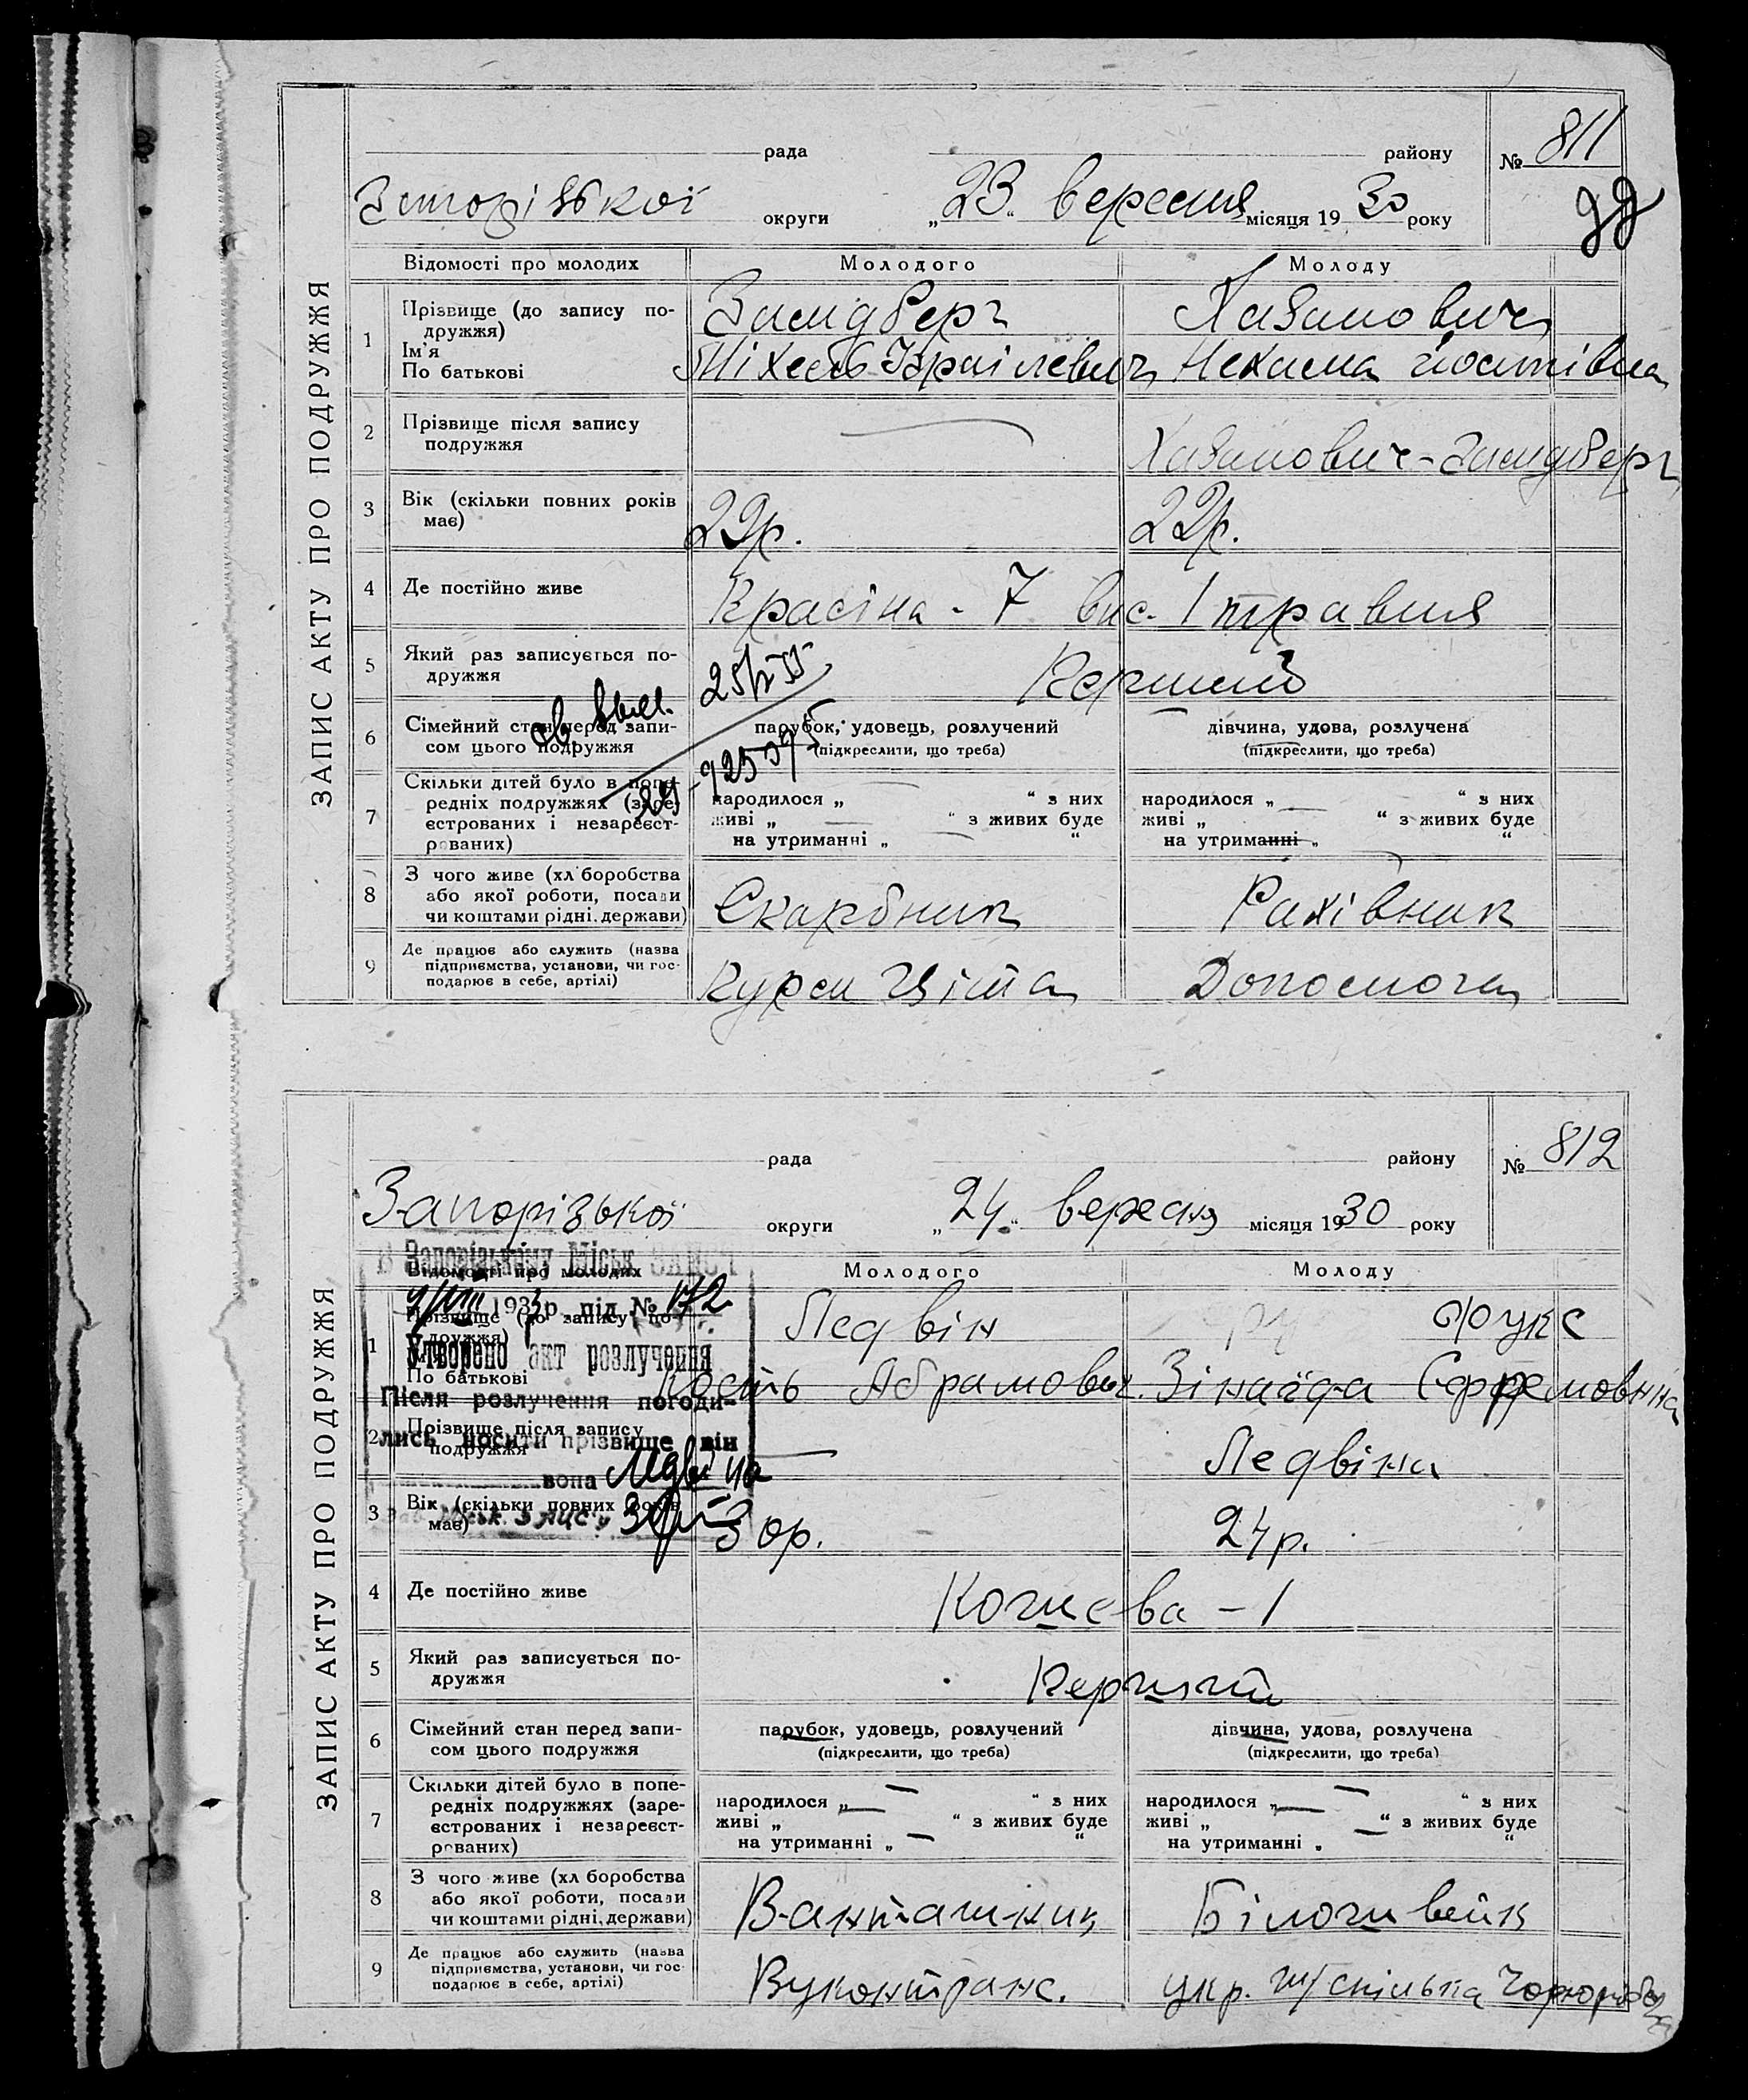 ЗАПИС АКТУ ПРО ПОДРУЖЖЯ
рада району № 811
округи „23“ вересня місяця 1930 року
Відомості про молодих Молодого Молоду
1 Прізвище (до запису подружжя) Хазанович
Ім'я
По батькові Ізраілевич Нехама
2 Прізвище після запису
подружжя Хазанович-
3 Вік (скільки повних років
має) 29р. 22р.
4 Де постійно живе Красіна - 7 вис. 1 травня
5 Який раз записується по-
дружжя Перший
6 Сімейний стан перед запи-
сом цього подружжя
парубок, удовець, розлучений
(підкреслити, що треба)
дівчина, удова, розлучена
(підкреслити, що треба)
7 Скільки дітей було в попе-
редніх подружжях (заре-
єстрованих і незареєст-
рованих)
народилося „ “ з них
живі „ “ з живих буде
на утриманні „ “
народилося „ “ з них
живі „ “ з живих буде
на утриманні „ “
8 З чого живе (хліборобства
або якої роботи, посади
чи коштами рідні, держави) Скарбник Рахівник
9 Де працює або служить (назва
підприємства, установи, чи гос-
подарює в себе, артілі) Курси Допомога
ЗАПИС АКТУ ПРО ПОДРУЖЖЯ
рада району № 812
Запорізької округи „24“ вересня місяця 1930 року
В Запорізькому Міськ ЗАГСі
Відомості про молодих Молодого Молоду
9/VIII 1933р. під № 172
1 Прізвище (до запису подружжя) Ледвін Фукс
Утворено акт розлучення
По батькові Абрамович Зінаїда
Після розлучення погоди-
2 Прізвище після запису
подружжя Ледвіна
лись носити прізвище він
вона Ледвіна
3 Вік (скільки повних років
має) 30р. 24р.
4 Де постійно живе - 1
5 Який раз записується по-
дружжя Перший
6 Сімейний стан перед запи-
сом цього подружжя
парубок, удовець, розлучений
(підкреслити, що треба)
дівчина, удова, розлучена
(підкреслити, що треба)
7 Скільки дітей було в попе-
редніх подружжях (заре-
єстрованих і незареєст-
рованих)
народилося „ “ з них
живі „ “ з живих буде
на утриманні „ “
народилося „ “ з них
живі „ “ з живих буде
на утриманні „ “
8 З чого живе (хліборобства
або якої роботи, посади
чи коштами рідні, держави) Вантажник Білошвейк
9 Де працює або служить (назва
підприємства, установи, чи гос-
подарює в себе, артілі) Вуконтранс. укр. спілка